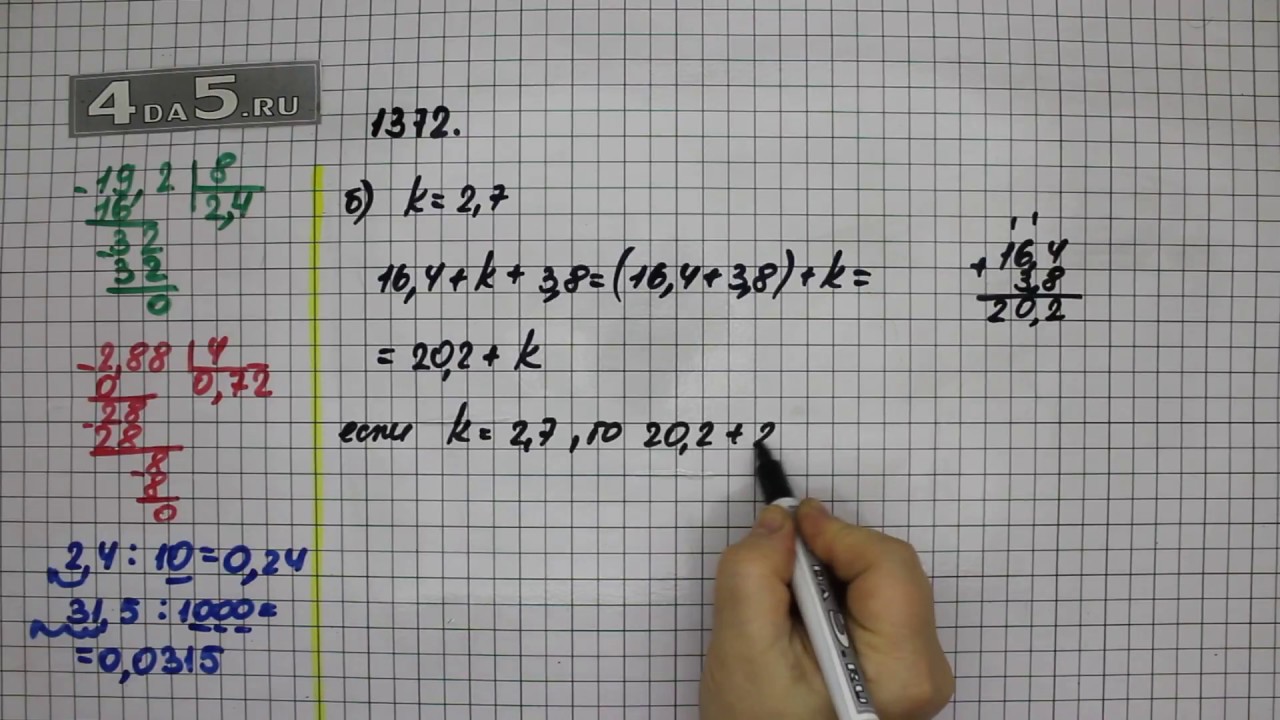 4DA5.RU
1372.
- 19,2 | 8
16 | 2,4
- 32
32
0
- 2,88 | 4
0 | 0,72
- 28
28
- 8
8
0
2,4 : 10 = 0,24
31,5 : 1000 =
= 0,0315
б) k = 2,7
16,4 + k + 3,8 = (16,4 + 3,8) + k =
= 20,2 + k
если k = 2,7, то 20,2 + 2
+ 16,4
3,8
20,2